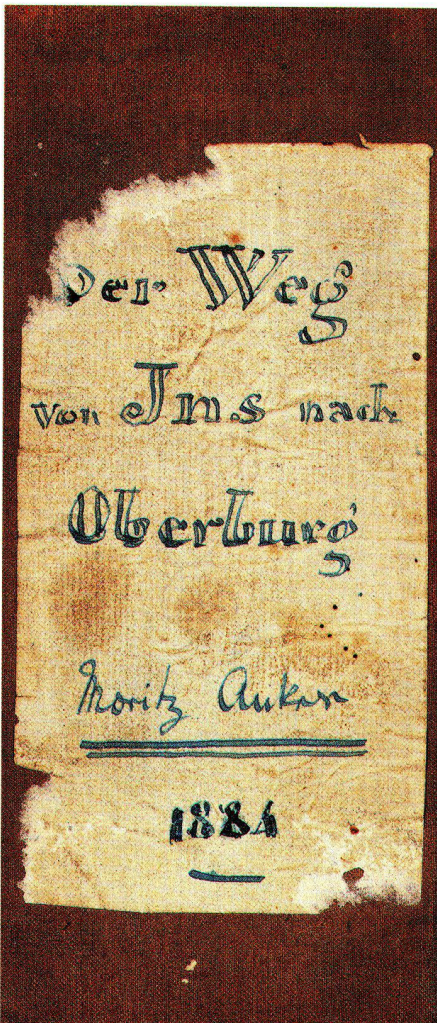 Der Weg
von Ins nach
Oberburg
Moritz Anker
1884